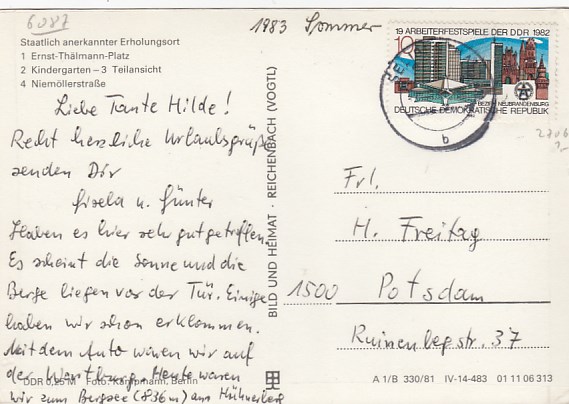 6087
1983 Sommer
Staatlich anerkannter Erholungsort
1 Ernst-Thälmann-Platz
2 Kindergarten – 3 Teilansicht
4 Niemöllerstraße
Liebe Tante Hilde!
Recht herzliche Urlaubsgrüße
senden Dir
Gisela u. Günter
Haben es hier sehr gut getroffen.
Es scheint die Sonne und die
Berge liegen vor der Tür. Einige
haben wir schon erklommen.
Mit dem Auto waren wir auf
der Wartburg. Heute waren
wir zum Bergsee (836m) am Hühnerberg
DDR 0,25 M Foto: Kampmann, Berlin
BILD UND HEIMAT · REICHENBACH (VOGTL)
19 ARBEITERFESTSPIELE DER DDR 1982
10
BEZIRK NEUBRANDENBURG
DEUTSCHE DEMOKRATISCHE REPUBLIK
b
Frl.
H. Freitag
1500 Potsdam
Ruinenbergstr. 37
A 1/B 330/81 IV-14-483 01 11 06 313